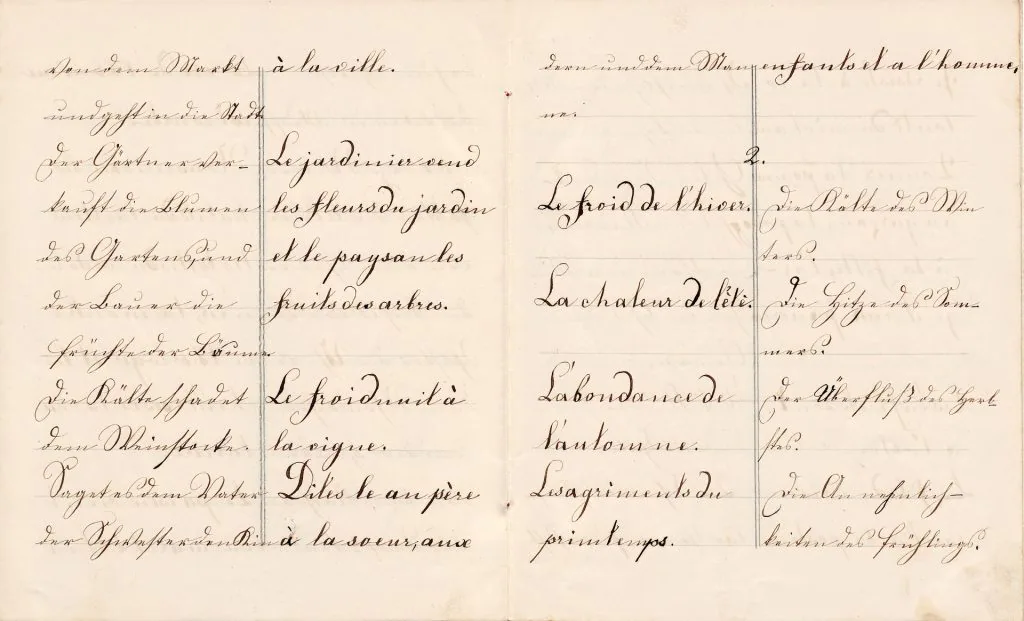 von dem Markt
und geht in die Stadt
Der Gärtner ver-
kauft die Blumen
des Gartens, und
der Bauer die
früchte der Bäume
Die Kälte schadet
dem Weinstocke.
Saget es dem Vater
der Schwester den Kin
à la ville.
Le jardinier vend
les fleurs du jardin
et le paysan les
fruits des arbres.
Le froid nuit à
la vigne.
Dites le au père
à la soeur, aux
dern und dem Man
ne.
enfants et a l'homme.
2.
Le froid de l'hiver.
La chaleur de l'été.
L'abondance de
l'automne.
Les agriments du
printemps.
Die Kälte des Win
ters.
Die Hitze des Som-
mers.
Der Überfluß des Herb-
stes.
Die Annehmlich-
keiten des frühlings.